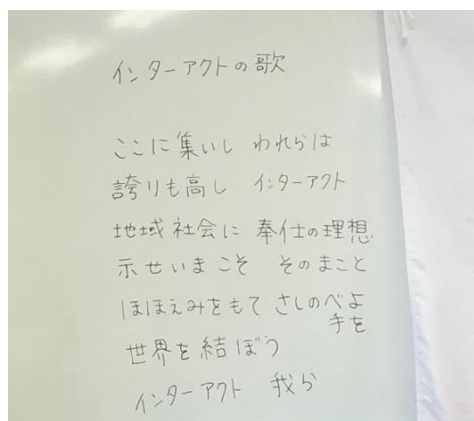 インターアクトの歌
ここに集いし われらは
誇りも高し インターアクト
地域社会に 奉仕の理想
示せいまこそ そのまこと
ほほえみをもて さしのべよ
手を
世界を結ぼう
インターアクト 我ら